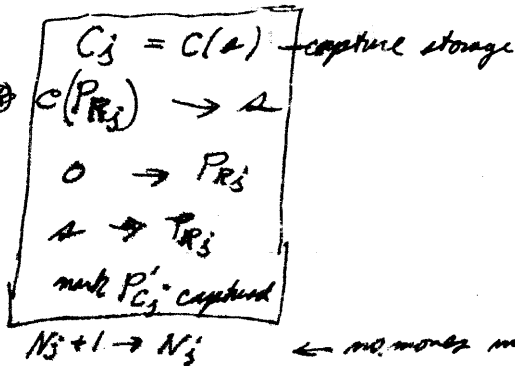 C_j = C(s) — capture storage
⊕ C(P_{R_j}) → s
0 → P_{R_j}
s → P_{R_j}
mark P'_{C_j} captured
N_j + 1 → N_j ← no. moves m